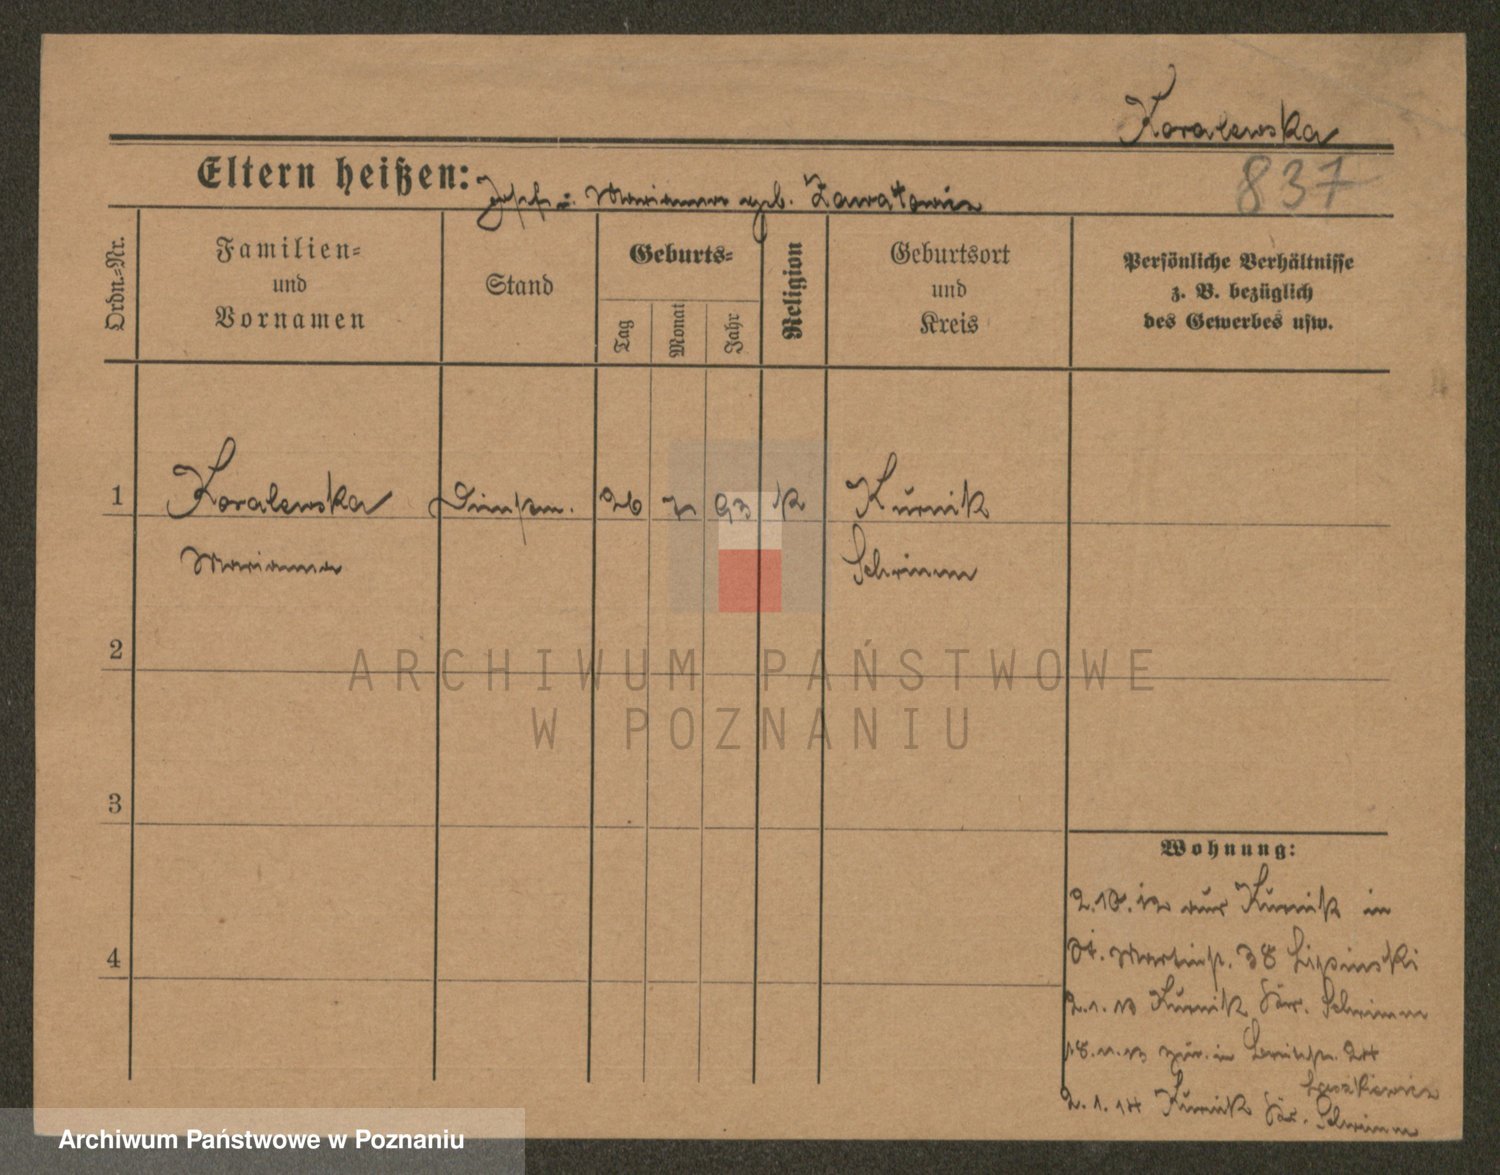 Koralewska
837
Eltern heißen: Josef u. Marianna geb. Zawatowicz
Ordn.-Nr.
Familien-
und
Vornamen
Stand
Geburts-
Tag
Monat
Jahr
Religion
Geburtsort
und
Kreis
Persönliche Verhältnisse
z. B. bezüglich
des Gewerbes usw.
1 Koralewska 26 7 93 k Kurnik
Marianna Schrimm
2
3
4
Wohnung:
2.10.12 aus Kurnik in
St. Martinstr. 38 Lipinski
2.1.13 Kurnik Schrimm
18.11.13 zur. in 24
2.1.14 Kurnik Schrimm
ARCHIWUM PAŃSTWOWE
W POZNANIU
Archiwum Państwowe w Poznaniu